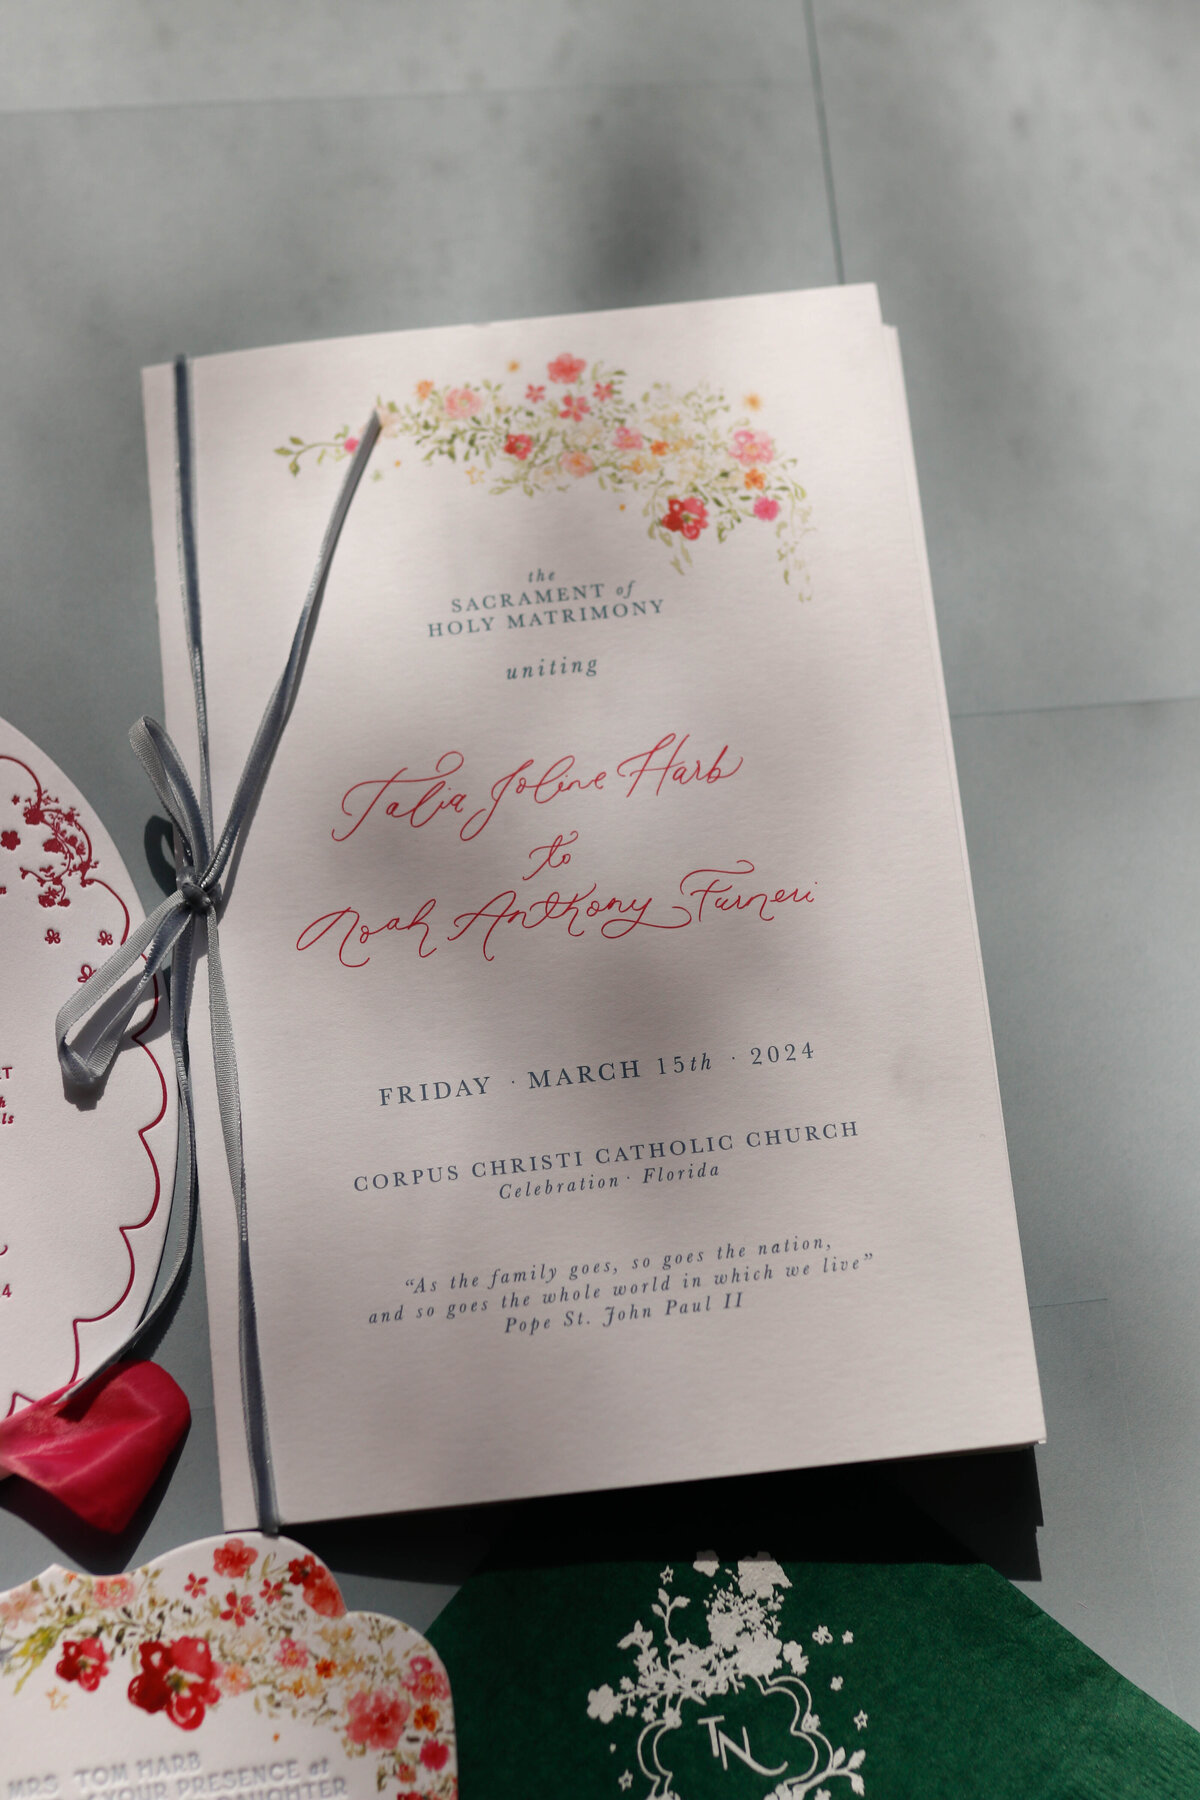 the
SACRAMENT of
HOLY MATRIMONY
uniting
Talia Joline Harb
to
Noah Anthony Furneri
FRIDAY · MARCH 15th · 2024
CORPUS CHRISTI CATHOLIC CHURCH
Celebration · Florida
“As the family goes, so goes the nation,
and so goes the whole world in which we live”
Pope St. John Paul II
MRS TOM HARB
YOUR PRESENCE at
DAUGHTER
TN